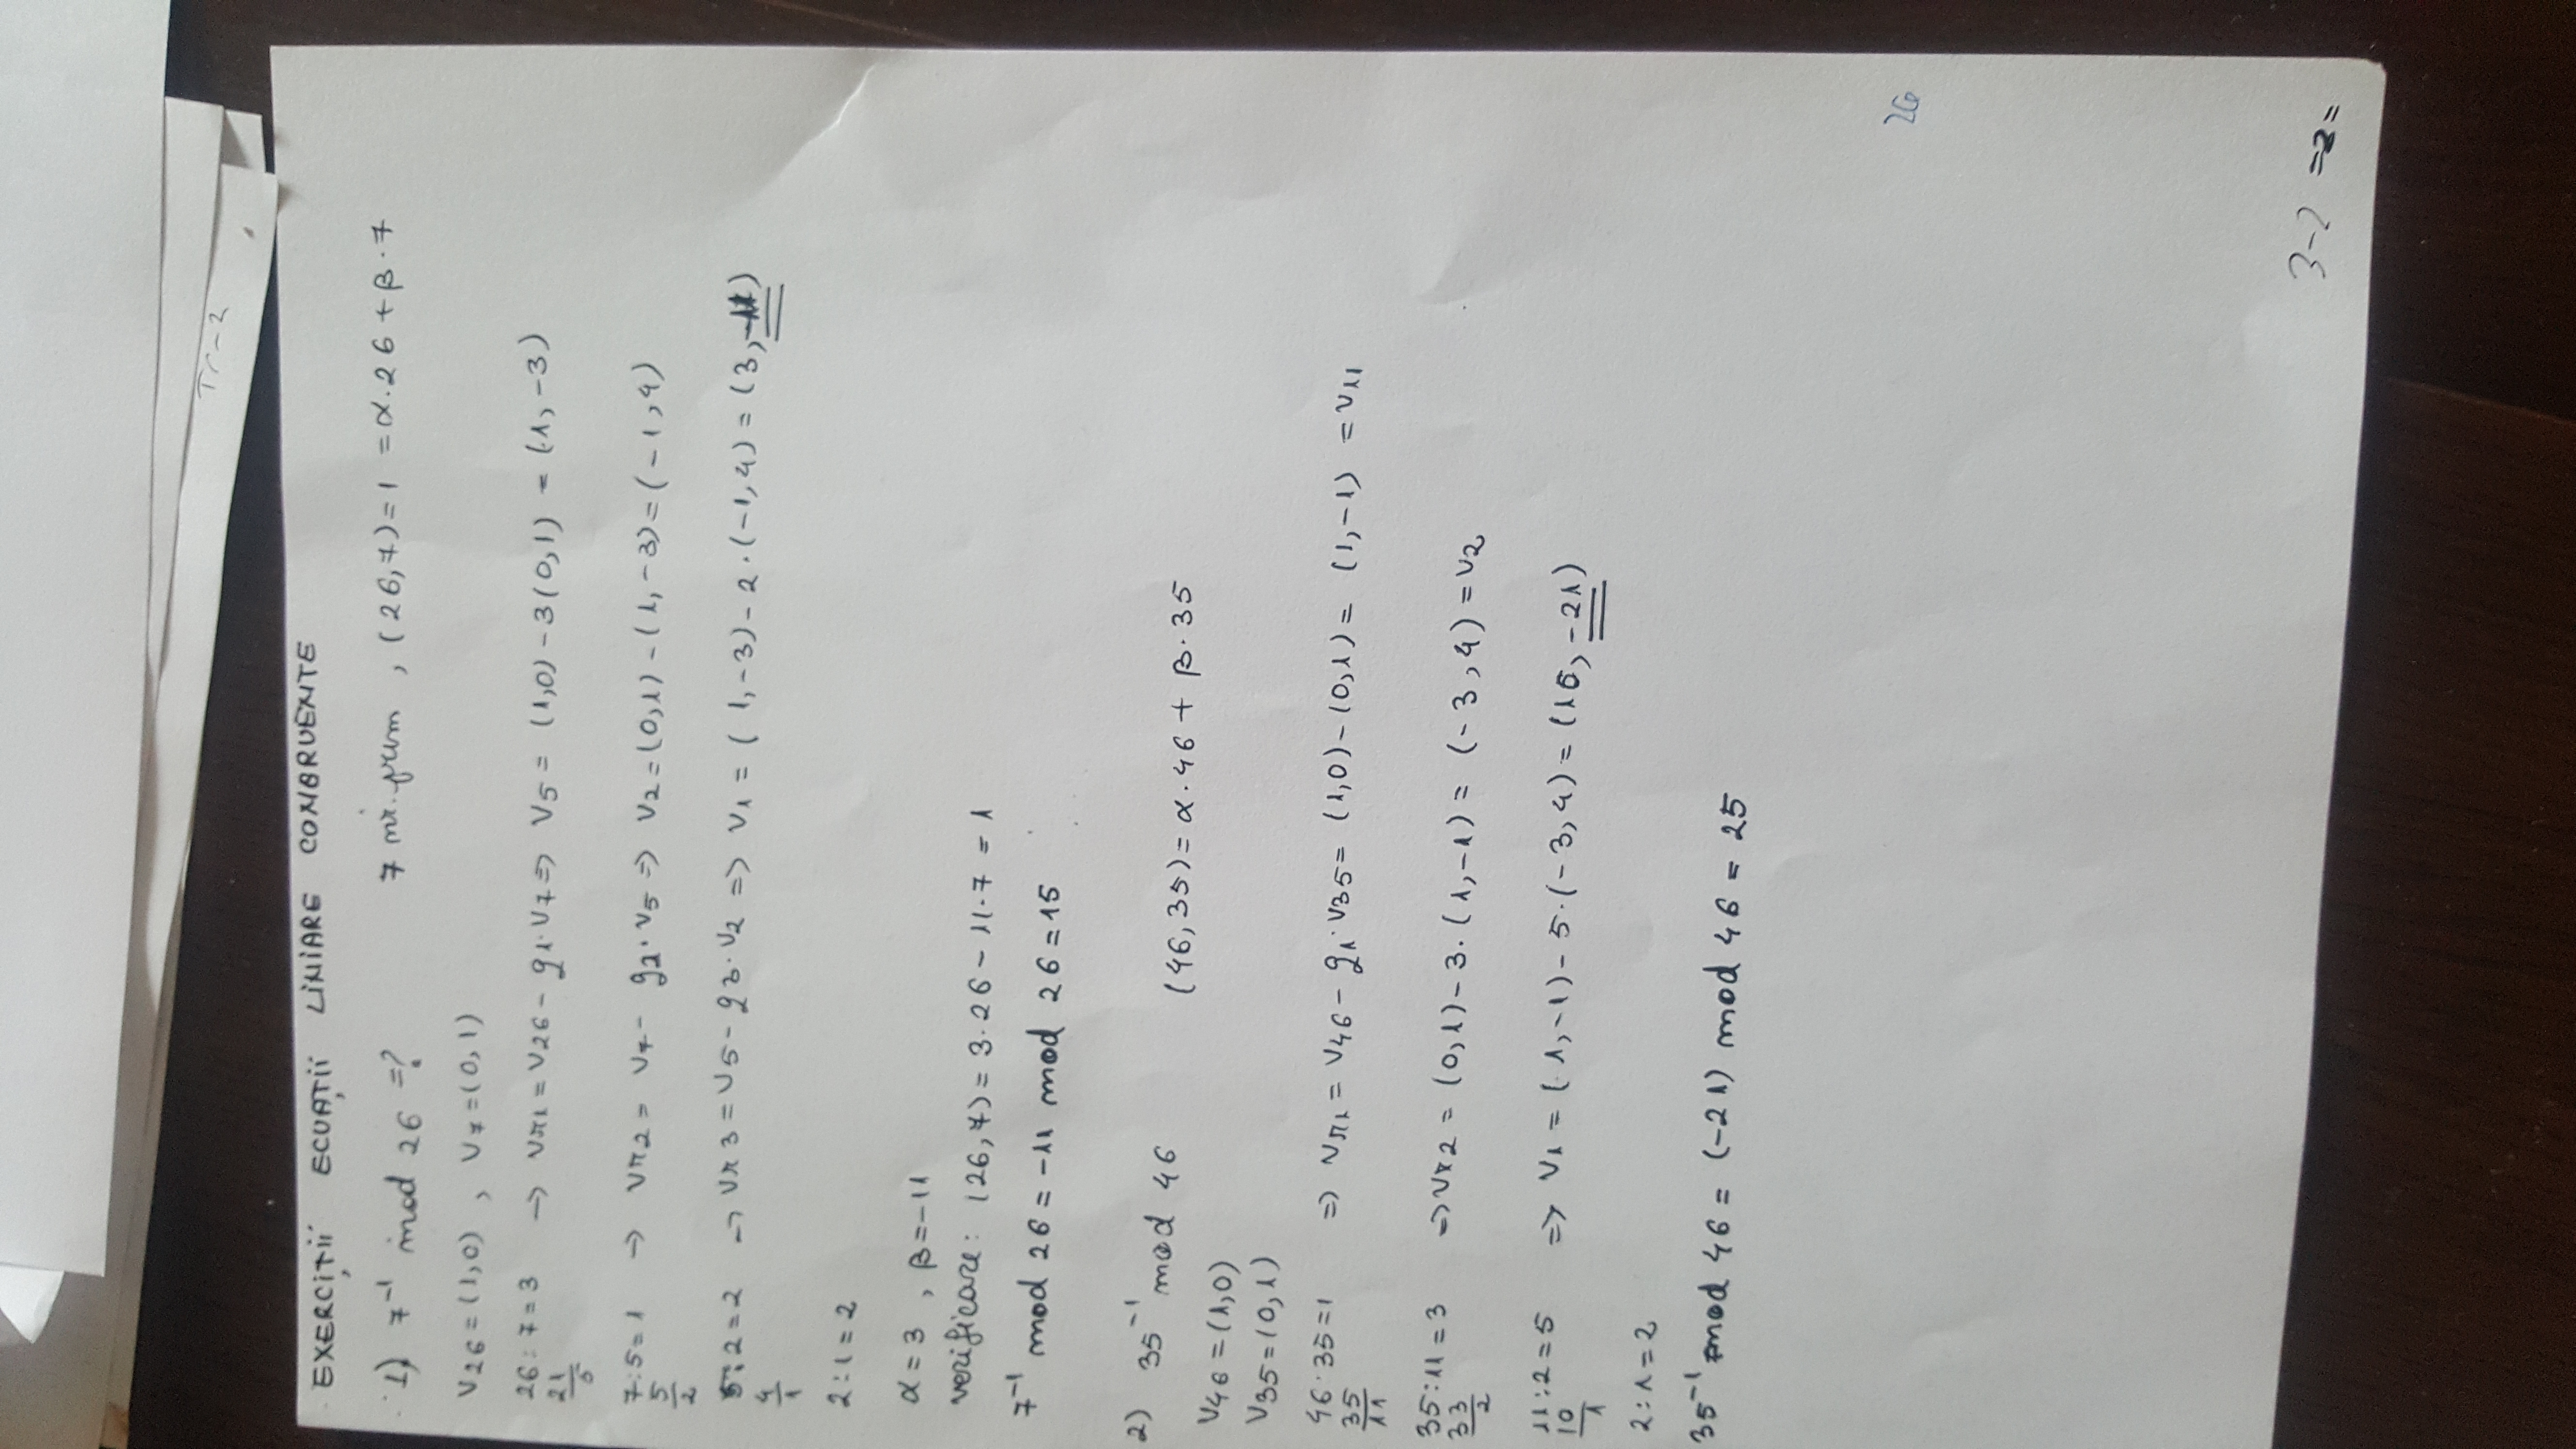 Tr-2
EXERCIȚII ECUAȚII LINIARE CONGRUENTE
1) 7⁻¹ mod 26 =? 7 nr. prim , (26,7)=1 =α·26+β·7
V26=(1,0) , V7=(0,1)
26:7=3 → Vr1=V26-q1·V7⇒ V5 = (1,0)-3(0,1) = (1,-3)
21
5
7:5=1 → Vr2= V7- q2·V5⇒ V2=(0,1)-(1,-3)=(-1,4)
5
2
5:2=2 → Vr3=V5-q3·V2 ⇒ V1 = (1,-3)-2·(-1,4)=(3,-11)
4
1
2:1=2
α=3 , β=-11
verificare: (26,7)=3·26-11·7=1
7⁻¹ mod 26=-11 mod 26=15
2) 35⁻¹ mod 46 (46,35)=α·46+β·35
V46=(1,0)
V35=(0,1)
46:35=1 ⇒ Vr1=V46-q1·V35=(1,0)-(0,1)=(1,-1)=V11
35
11
35:11=3 ⇒Vr2=(0,1)-3·(1,-1)=(-3,4)=V2
33
2
11:2=5 ⇒ V1=(1,-1)-5·(-3,4)=(16,-21)
10
1
2:1=2
35⁻¹ mod 46=(-21) mod 46=25
26
3-2 =2=